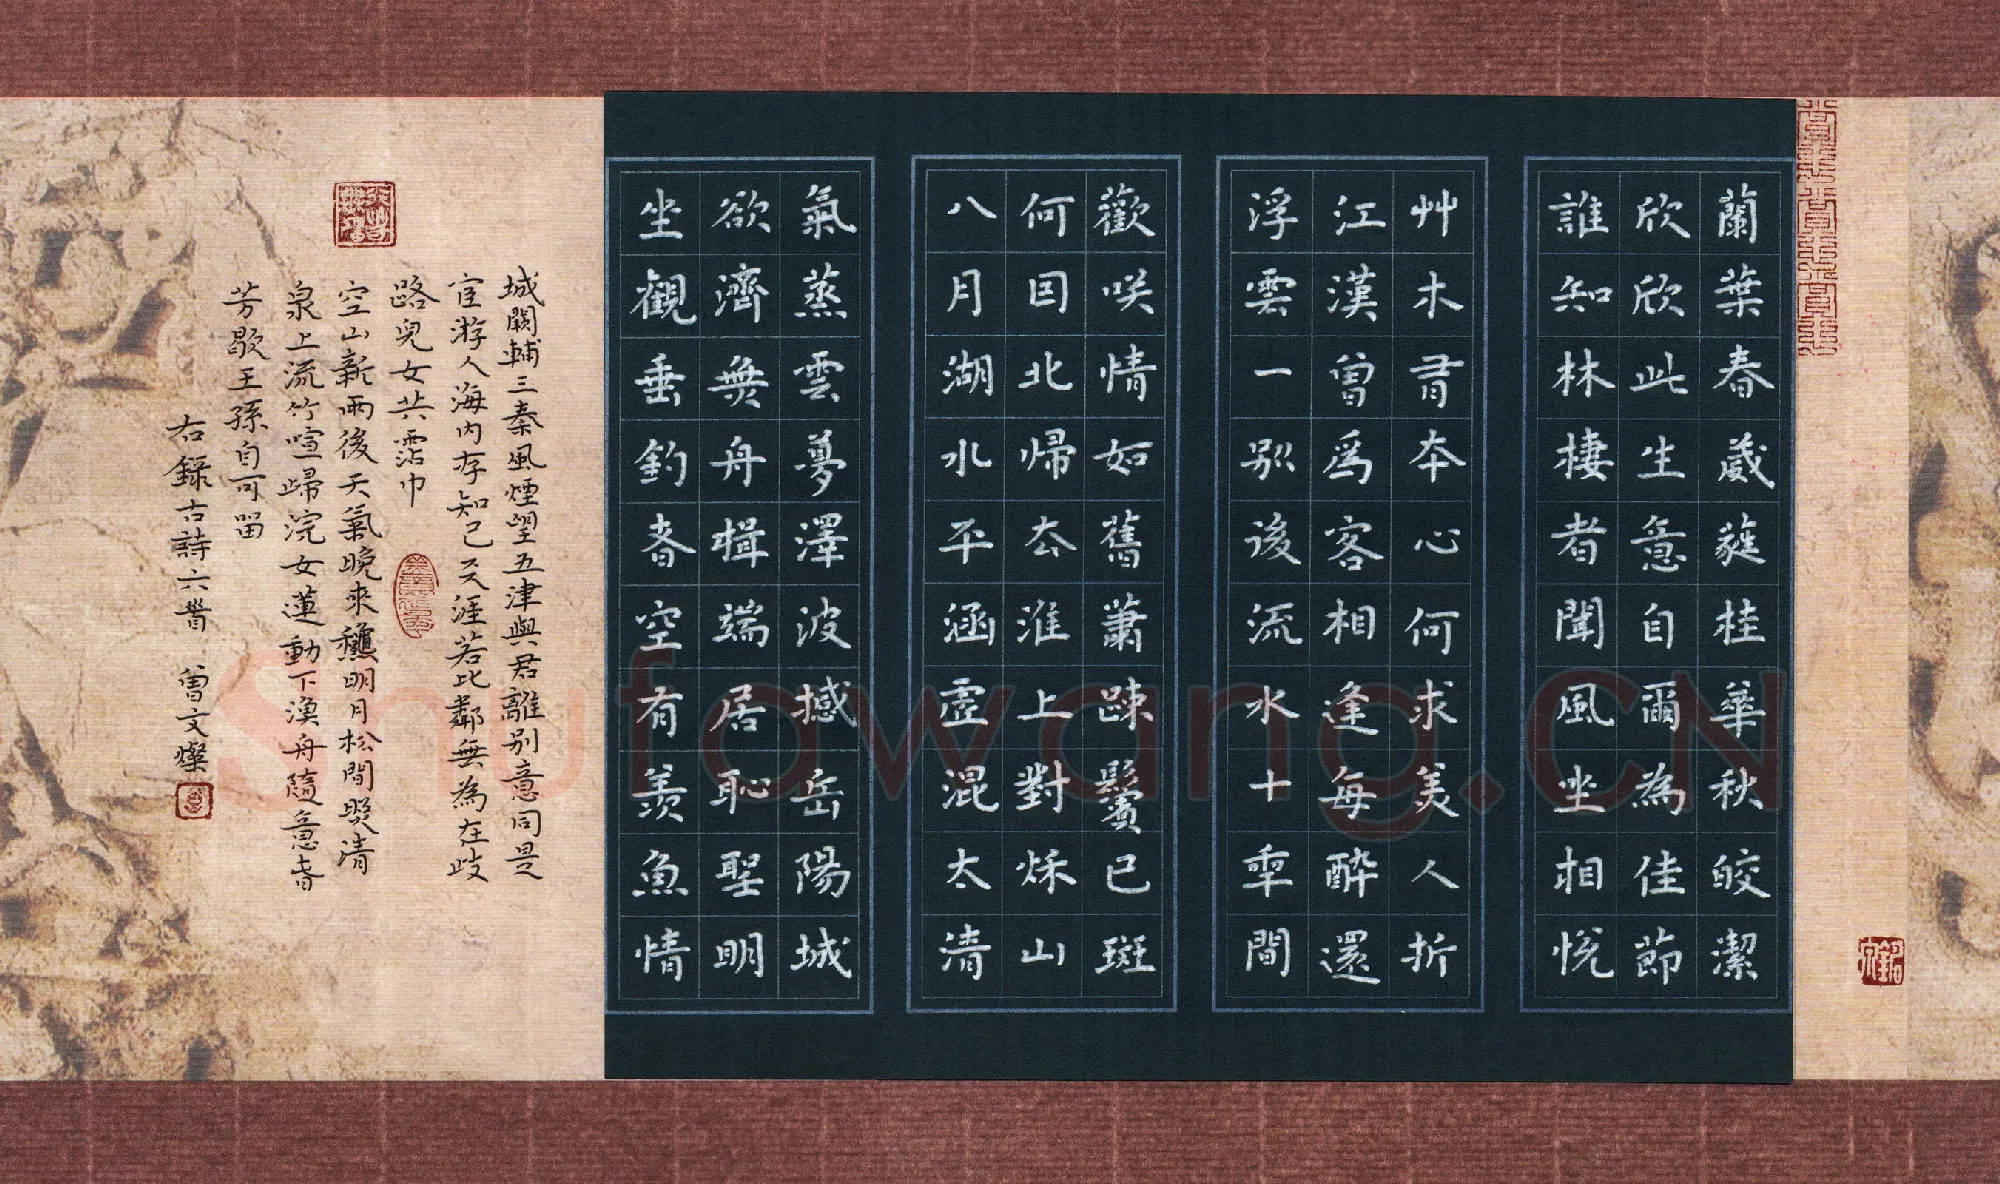 蘭葉春葳蕤桂華秋皎潔
欣欣此生意自爾為佳節
誰知林棲者聞風坐相悅
艸木有本心何求美人折
江漢曾爲客相逢每醉還
浮雲一別後流水十秊間
歡咲情如舊蕭踈鬢已斑
何囙北歸厺淮上對秌山
八月湖水平涵虛混太清
氣蒸雲夢澤波撼岳陽城
欲濟無舟楫端居恥聖明
坐觀垂釣者空有羨魚情
城闕輔三秦風煙望五津與君離別意同是
宦游人海內存知己天涯若比鄰無為在歧
路兒女共霑巾
空山新雨後天氣晚來龝明月松間照清
泉上流竹喧歸浣女蓮動下漁舟隨意春
芳歇王孫自可留
右錄古詩六首 曾文燦
Shufawang.CN